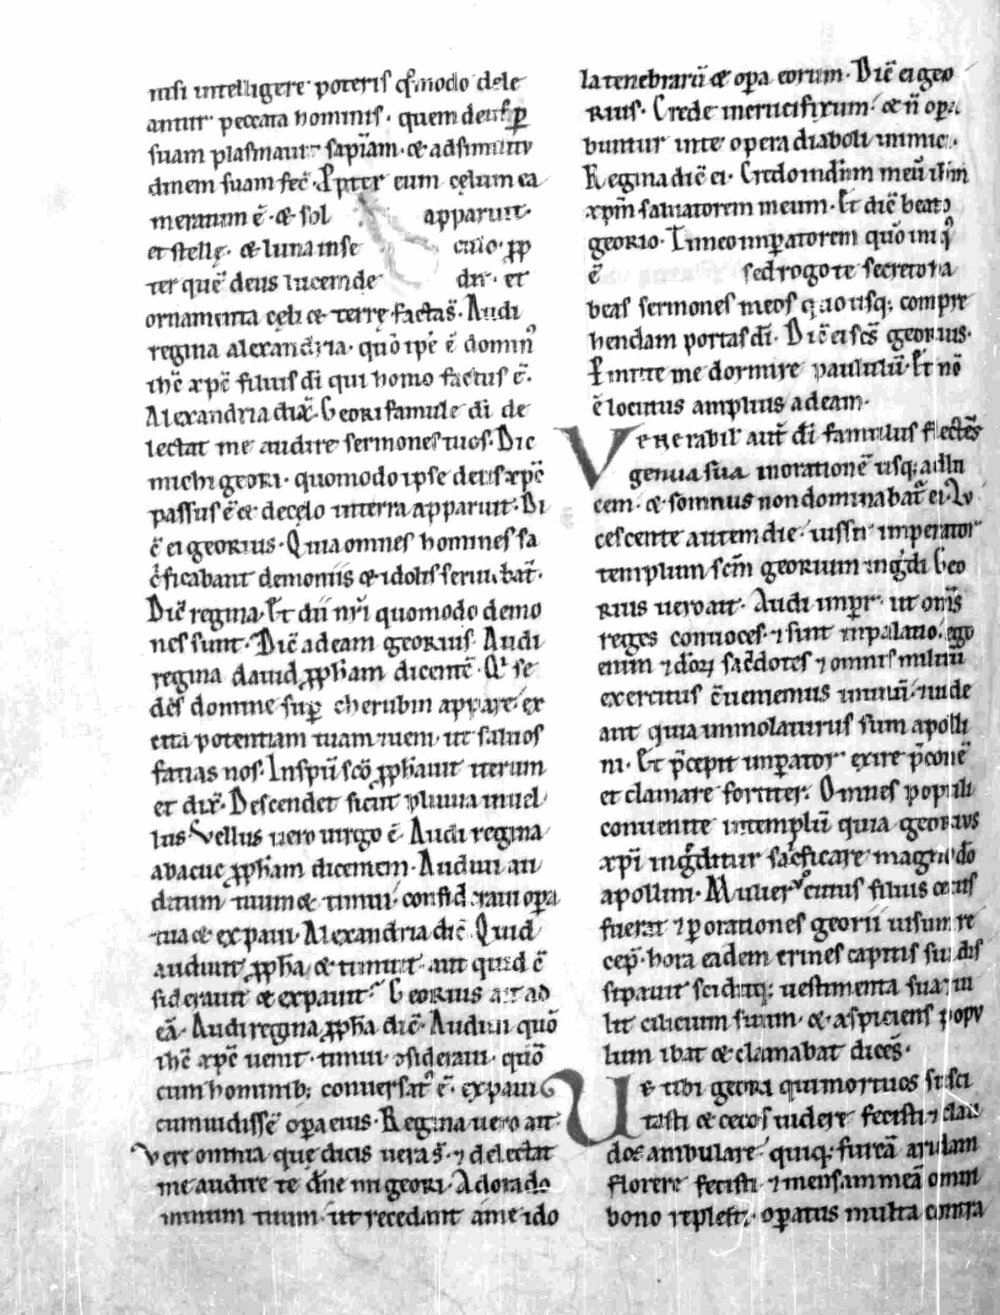 nisi intelligere poteris q̄modo dele
antur peccata hominis. quem deus ꝑ
suam plasmauit sapiam. & adsimilitu
dinem suam fec̄. Ppter eum cęlum ea
meratum ē. & sol apparuit.
et stellę. & luna inse culo. ꝓp
ter quē deus lucem de dit. et
ornamenta cęli & terrę factas̄. Audi
regina alexandria. quō ip̄e ē domin᷒
ih̄c xp̄c filius dī qui homo factus ē.
Alexandria dix̄. Geori famule dī de
lectat me audire sermones tuos. Dic
michi geori. quomodo ipse deus xp̄c
passus ē & de cęlo interra apparuit. Di
c̄ ei georius. Quia omnes homines sa
c̄ficabant demoniis & idolis seruiebat̄.
Dic̄ regina. Et dii nr̄i quomodo demo
nes sunt. Dic̄ adeam georius. Audi
regina dauid ꝓph̄am dicentē. Qi se
des domine sup̄ cherubin appare. ex
cita potentiam tuam & ueni. ut saluos
facias nos. Insp̄u sc̄o ꝓph̄auit iterum
et dix̄. Descendet sicut pluuia inuel
lus. Vellus uero uirgo ē. Audi regina
abacuc ꝓph̄am dicentem. Audiui au
ditum tuum & timui. consideraui opera
tua & expaui. Alexandria dic̄. Quid
audiuit ꝓph̄a & timuit. aut quid c̄
siderauit & expauit. Georius ait ad
eā. Audi regina ꝓph̄a dic̄. Audiui quō
ih̄c xp̄c uenit. timui. ɔsideraui. quō
cum hominib; conuersat᷒ ē. expaui
cum uidissē opera eius. Regina uero ait.
Vere omnia quę dicis uera s̄. ⁊ delectat
me audire te dn̄e mi geori. Adora do
minum tuum. ut recedant ame ido
la tenebrarū & opera eorum. Dic̄ ei geo
rius. Crede in crucifixum. & n̄ opera
buntur inte opera diaboli inimici.
Regina dic̄ ei. Credo in dn̄m meū ih̄m
xp̄m saluatorem meum. Et dic̄ beato
georio. Timeo imperatorem quō iniq᷒
ē sed rogo te secreto ha
beas sermones meos quousq; compre
hendam portas dī. Dic̄ ei sc̄s georius.
Pmitte me dormire paululū. Et nō
ē locutus amplius adeam.
Venerabil̄ aut̄ dī famulus flectēs
genua sua inorationē usq; ad lu
cem. & somnus non dominabat̄ ei. Lu
cescente autem die. iussit imperator
templum scm̄ georium ingr̄di Geo
rius uero ait. Audi imp̄r. ut omīs
reges conuoces. ⁊ sint inpalatio. ego
enim ⁊ deorꝝ sac̄dotes ⁊ omnis militū
exercitus c̄ueniemus inunū. inde
ant quia immolaturus sum apolli
ni. Et p̄cepit imperator exire p̄conē
et clamare fortiter. Omnes populi
conuenite intemplū quia georius
xp̄i ingr̄ditur sac̄ficare magno dō
apollini. Mulier v̊ cuius filius cecus
fuerat ⁊ ꝑ orationes georii uisum re
cep̄. hora eadem crines capitis sui dis
sipauit sciditq; uestimenta sua. in
lit cilicium suum. & aspiciens popu
lum ibat & clamabat dicēs.
Ue tibi geori qui mortuos susci
tasti & cecos uidere fecisti ⁊ clau
dos ambulare. quiq; furcā aridam
florere fecisti. ⁊ mensam meā omni
bono replesti. operatus multa contra